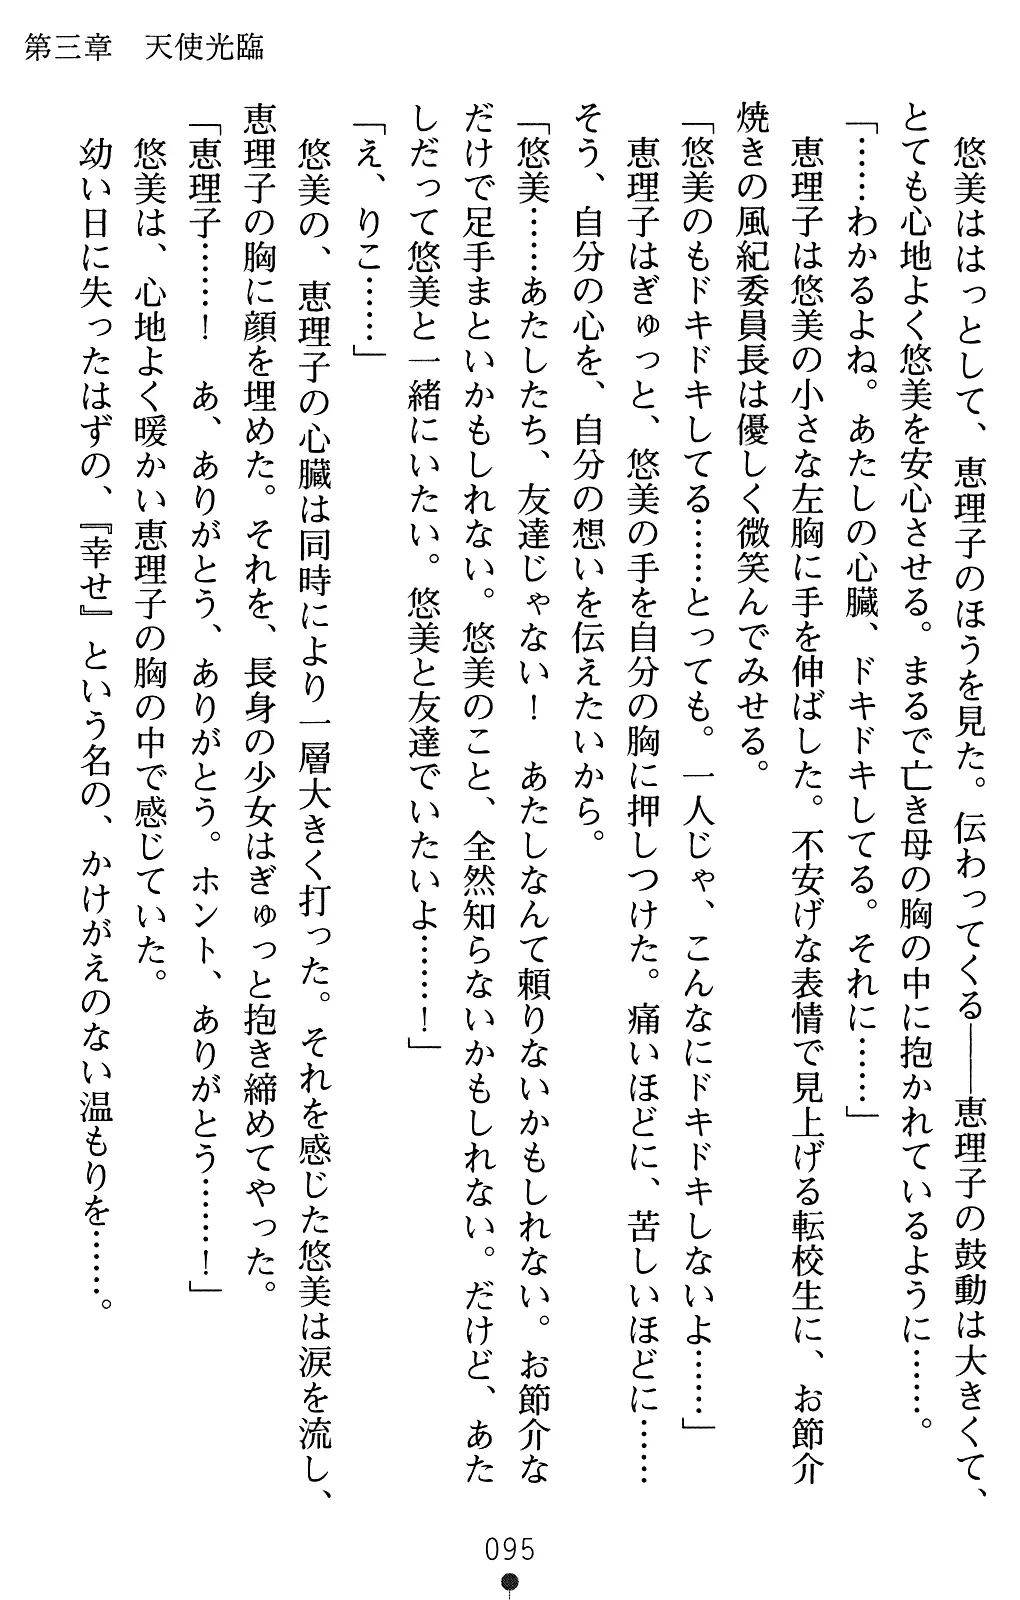 第三章　天使光臨
　悠美ははっとして、恵理子のほうを見た。伝わってくる――恵理子の鼓動は大きくて、
とても心地よく悠美を安心させる。まるで亡き母の胸の中に抱かれているように……。
「……わかるよね。あたしの心臓、ドキドキしてる。それに……」
　恵理子は悠美の小さな左胸に手を伸ばした。不安げな表情で見上げる転校生に、お節介
焼きの風紀委員長は優しく微笑んでみせる。
「悠美のもドキドキしてる……とっても。一人じゃ、こんなにドキドキしないよ……」
　恵理子はぎゅっと、悠美の手を自分の胸に押しつけた。痛いほどに、苦しいほどに……
そう、自分の心を、自分の想いを伝えたいから。
「悠美……あたしたち、友達じゃない！　あたしなんて頼りないかもしれない。お節介な
だけで足手まといかもしれない。悠美のこと、全然知らないかもしれない。だけど、あた
しだって悠美と一緒にいたい。悠美と友達でいたいよ……！」
「え、りこ……」
　悠美の、恵理子の心臓は同時により一層大きく打った。それを感じた悠美は涙を流し、
恵理子の胸に顔を埋めた。それを、長身の少女はぎゅっと抱き締めてやった。
「恵理子……！　あ、ありがとう、ありがとう。ホント、ありがとう……！」
　悠美は、心地よく暖かい恵理子の胸の中で感じていた。
　幼い日に失ったはずの、『幸せ』という名の、かけがえのない温もりを……。
095